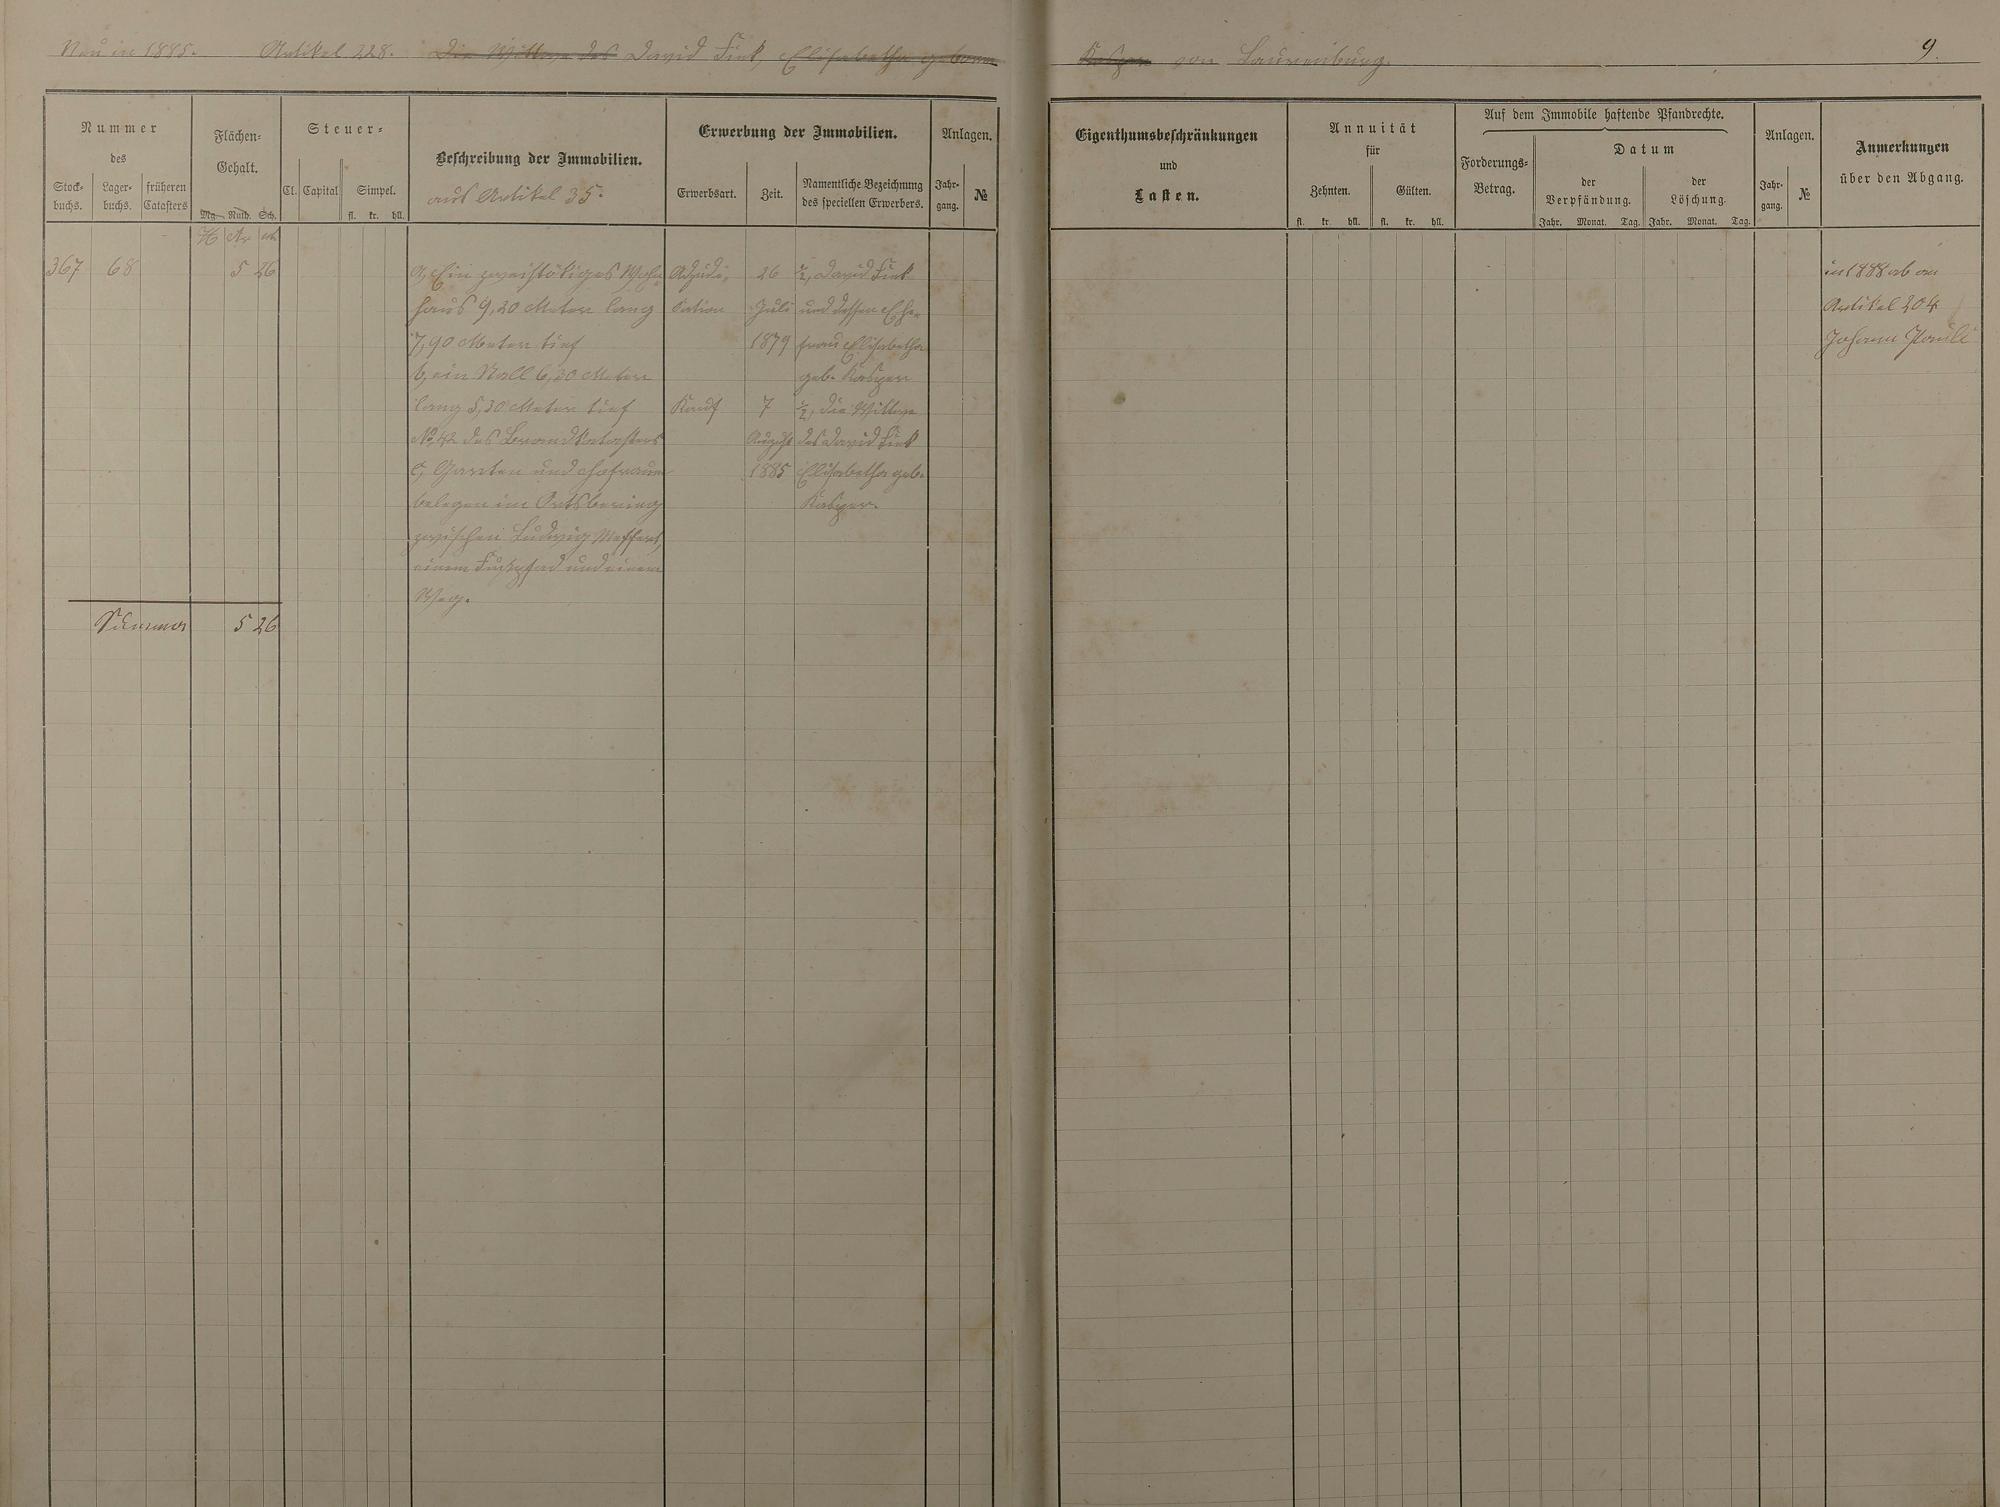 Neu in 1885. Artikel 228. Die Wittwe des David Fink, Elisabetha geborne
Kasper von Laurenburg.
9.
Nummer
des
Stock-
buchs.
Lager-
buchs.
früheren
Catasters
Flächen-
Gehalt.
Mg. Ruth. Sch.
Steuer-
Cl. Capital
Simpel.
fl. kr. hll.
Beschreibung der Immobilien.
aus Artikel 35.
Erwerbung der Immobilien.
Erwerbsart.
Zeit.
Namentliche Bezeichnung
des speciellen Erwerbers.
Anlagen.
Jahr-
gang.
№
Eigenthumsbeschränkungen
und
Lasten.
Annuität
für
Zehnten.
Gülten.
fl. kr. hll. fl. kr. hll.
Auf dem Immobile haftende Pfandrechte.
Forderungs-
Betrag.
Datum
der
Verpfändung.
der
Löschung.
Jahr. Monat. Tag. Jahr. Monat. Tag.
Anlagen.
Jahr-
gang.
№
Anmerkungen
über den Abgang.
H Ar
367 68 5 26
a, Ein zweistökiges Wohn-
haus 9,20 Meter lang
7,90 Meter tief
b, ein Stall 6,20 Meter
lang 5,30 Meter tief
No. 42 des Brandkatasters
c, Garten und Hofraum
belegen im Ortsbering
zwischen Ludwig Meffert,
einem Fußpfad und einem
Weg.
Adjudi-
kation
26
Juli
1879
½, David Fink
und dessen Ehe-
frau Elisabetha
geb. Kasper
Kauf
7
August
1885
½, die Wittwe
des David Fink
Elisabetha geb.
Kasper.
in 1888 ab an
Artikel 204
Johann Pauli
Summa 5 26